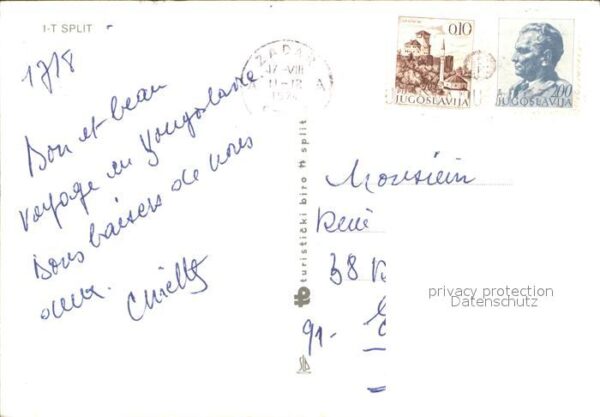 1-T SPLIT
17/8
Bon et beau
voyage en Yougoslavie
Bons baisers de nous
deux.
ZADAR
17-VIII
11-12
A A
0.10
JUGOSLAVIJA
2.00
JUGOSLAVIJA
turistički biro split
tb
Monsieur
René
38
91-
privacy protection
Datenschutz